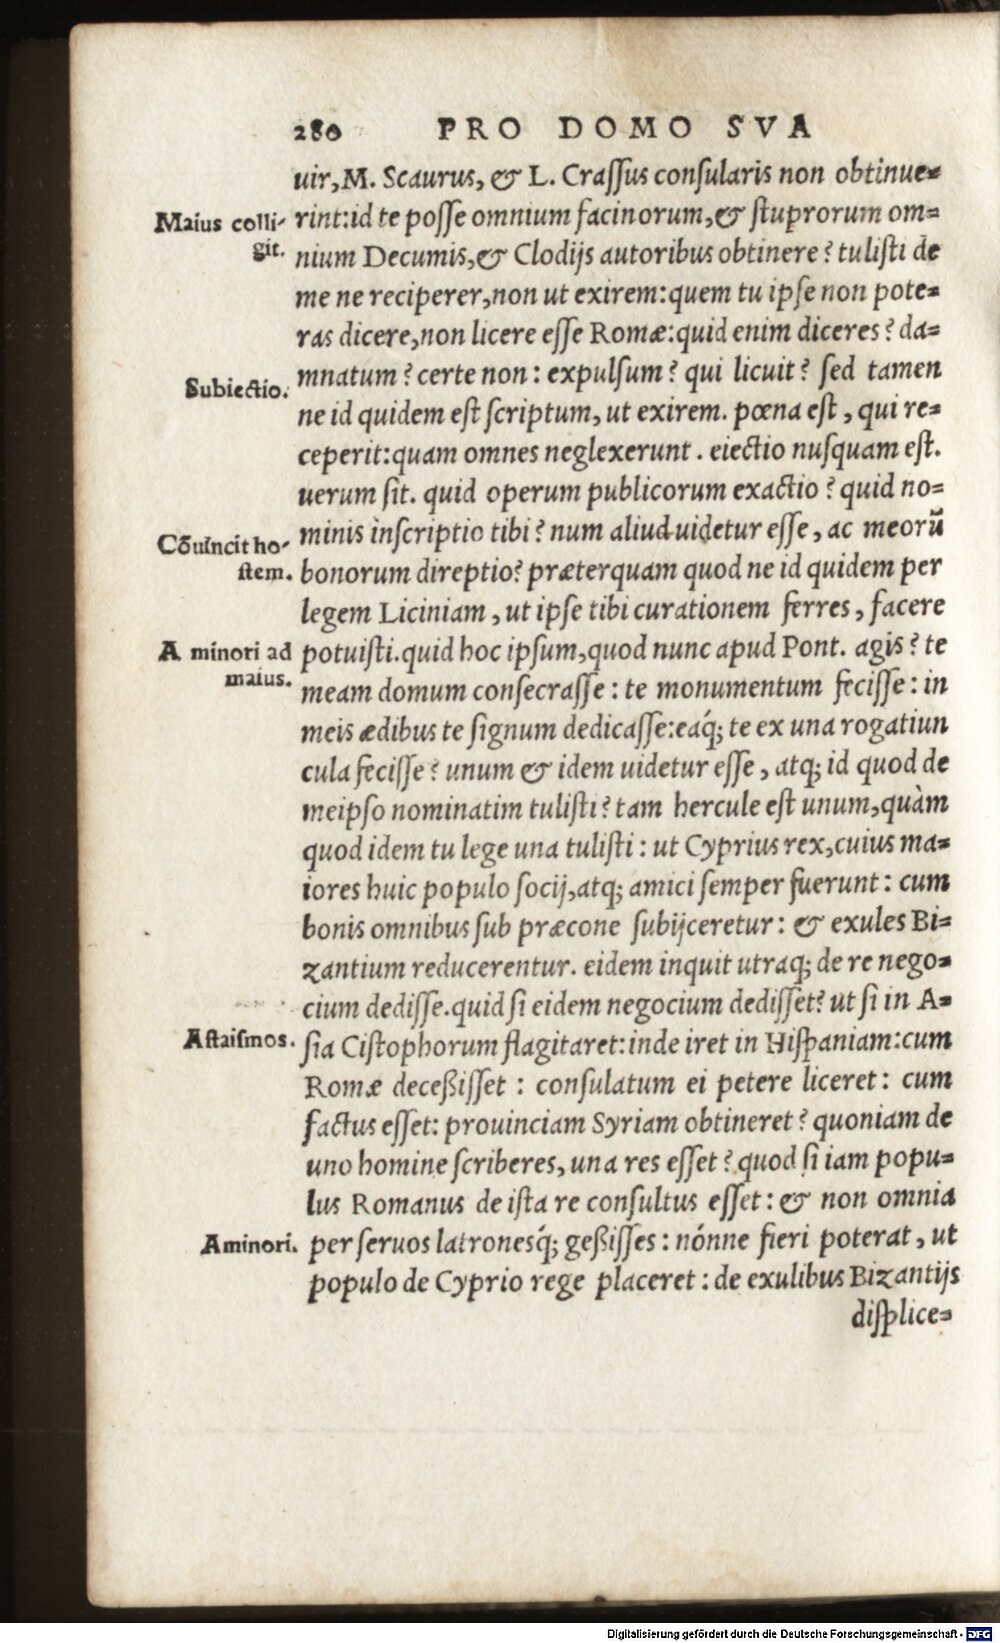 280 PRO DOMO SVA
uir, M. Scaurus, & L. Crassus consularis non obtinue=
Maius colli-
git.
rint: id te posse omnium facinorum, & stuprorum om=
nium Decumis, & Clodijs autoribus obtinere? tulisti de
me ne reciperer, non ut exirem: quem tu ipse non pote=
ras dicere, non licere esse Romæ: quid enim diceres? da=
Subiectio.
mnatum? certe non: expulsum? qui licuit? sed tamen
ne id quidem est scriptum, ut exirem. pœna est, qui re=
ceperit: quam omnes neglexerunt. eiectio nusquam est.
uerum sit. quid operum publicorum exactio? quid no=
Cōuincit ho-
stem.
minis inscriptio tibi? num aliud uidetur esse, ac meorū
bonorum direptio? præterquam quod ne id quidem per
legem Liciniam, ut ipse tibi curationem ferres, facere
A minori ad
maius.
potuisti. quid hoc ipsum, quod nunc apud Pont. agis? te
meam domum consecrasse: te monumentum fecisse: in
meis ædibus te signum dedicasse: eáq; te ex una rogatiun
cula fecisse? unum & idem uidetur esse, atq; id quod de
meipso nominatim tulisti? tam hercule est unum, quàm
quod idem tu lege una tulisti: ut Cyprius rex, cuius ma=
iores huic populo socij, atq; amici semper fuerunt: cum
bonis omnibus sub præcone subijceretur: & exules Bi=
zantium reducerentur. eidem inquit utraq; de re nego=
cium dedisse. quid si eidem negocium dedisset? ut si in A=
Astaismos.
sia Cistophorum flagitaret: inde iret in Hispaniam: cum
Romæ deceßisset: consulatum ei petere liceret: cum
factus esset: prouinciam Syriam obtineret? quoniam de
uno homine scriberes, una res esset? quod si iam popu=
lus Romanus de ista re consultus esset: & non omnia
A minori.
per seruos latronesq́; geßisses: nónne fieri poterat, ut
populo de Cyprio rege placeret: de exulibus Bizantijs
displice=
Digitalisierung gefördert durch die Deutsche Forschungsgemeinschaft - DFG